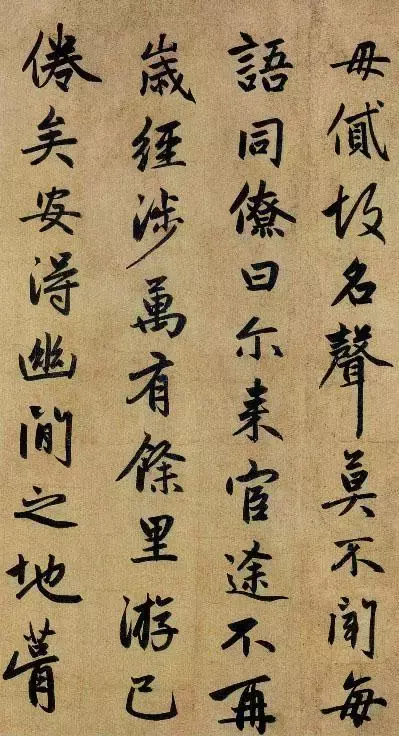 毋貮故名聲莫不聞每
語同僚曰尓来宦途不再
歲經涉萬有餘里游已
倦矣安得幽閒之地